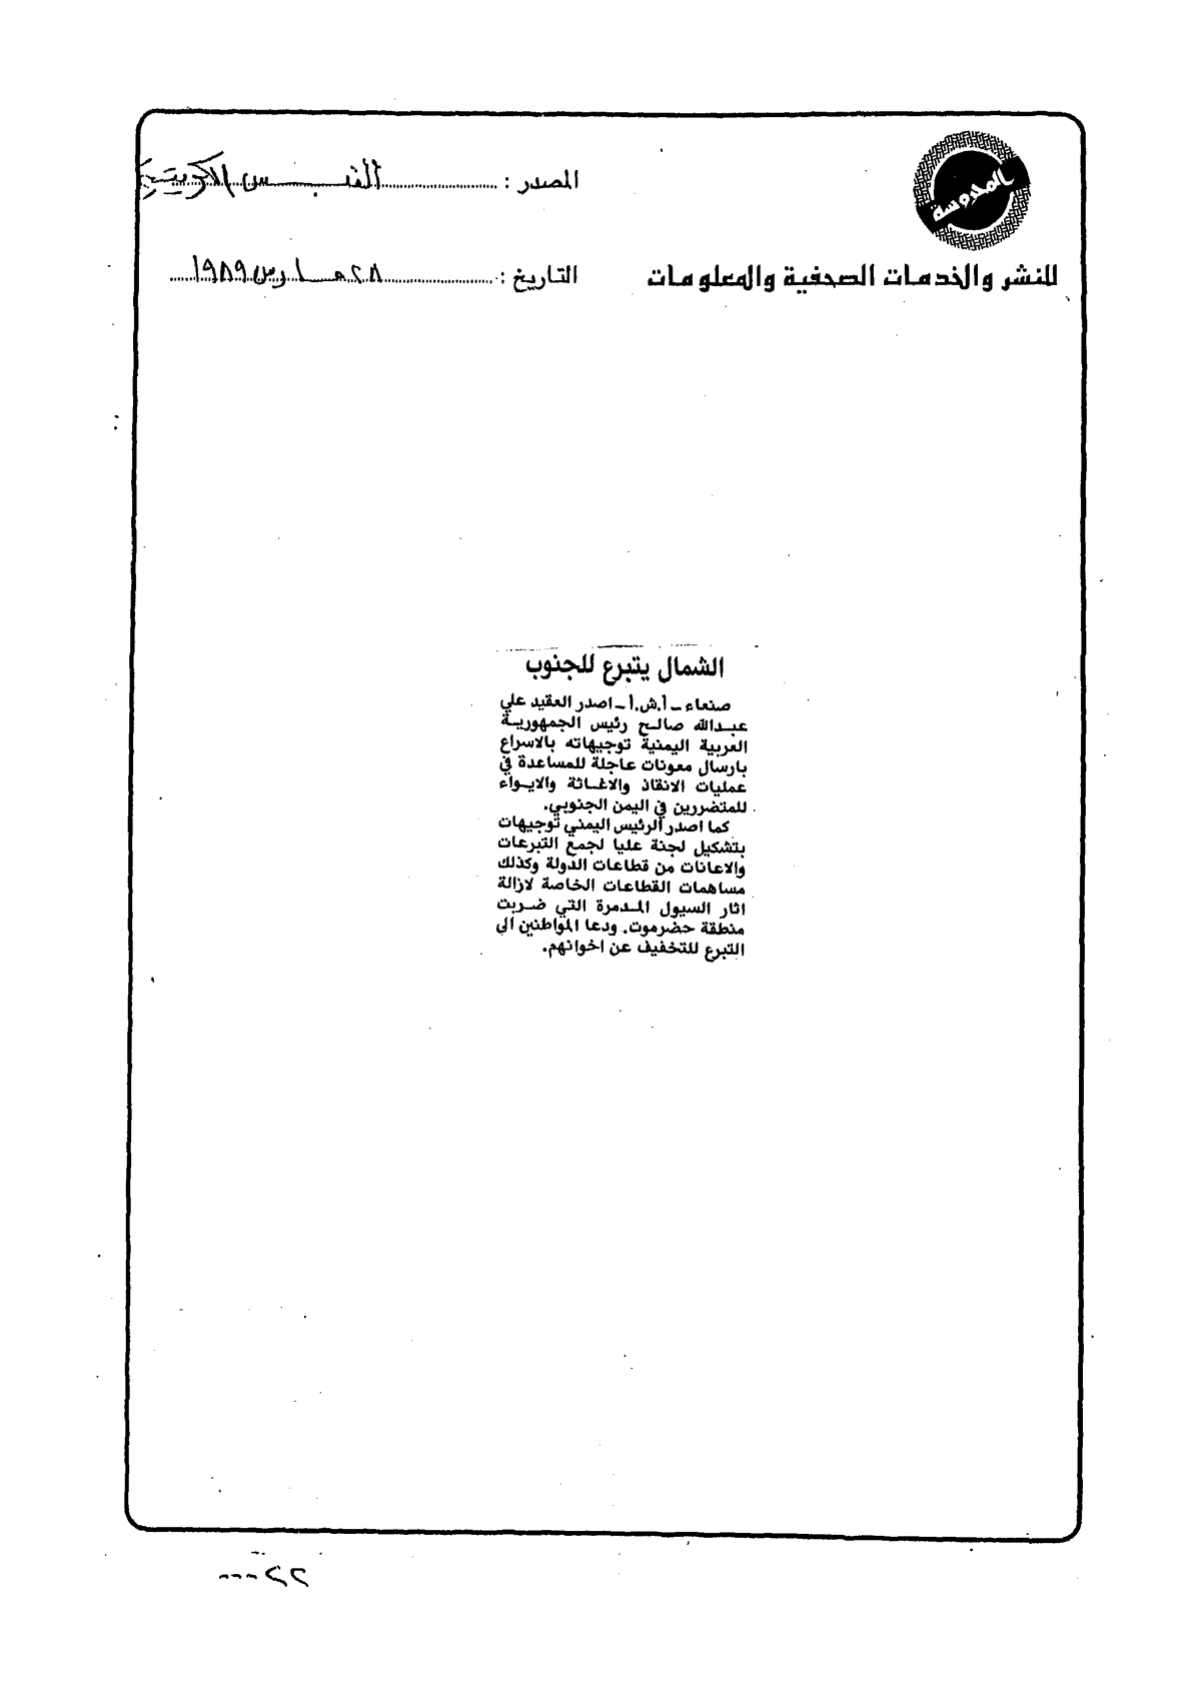 المحروسة
للنشر والخدمات الصحفية والمعلومات
المصدر : القبس الكويتية
التاريخ : ٢٨ مارس ١٩٨٩
الشمال يتبرع للجنوب
صنعاء - أ.ش.أ - اصدر العقيد علي
عبدالله صالح رئيس الجمهورية
العربية اليمنية توجيهاته بالاسراع
بارسال معونات عاجلة للمساعدة في
عمليات الانقاذ والاغاثة والايواء
للمتضررين في اليمن الجنوبي.
كما اصدر الرئيس اليمني توجيهات
بتشكيل لجنة عليا لجمع التبرعات
والاعانات من قطاعات الدولة وكذلك
مساهمات القطاعات الخاصة لازالة
اثار السيول المدمرة التي ضربت
منطقة حضرموت. ودعا المواطنين الى
التبرع للتخفيف عن اخوانهم.